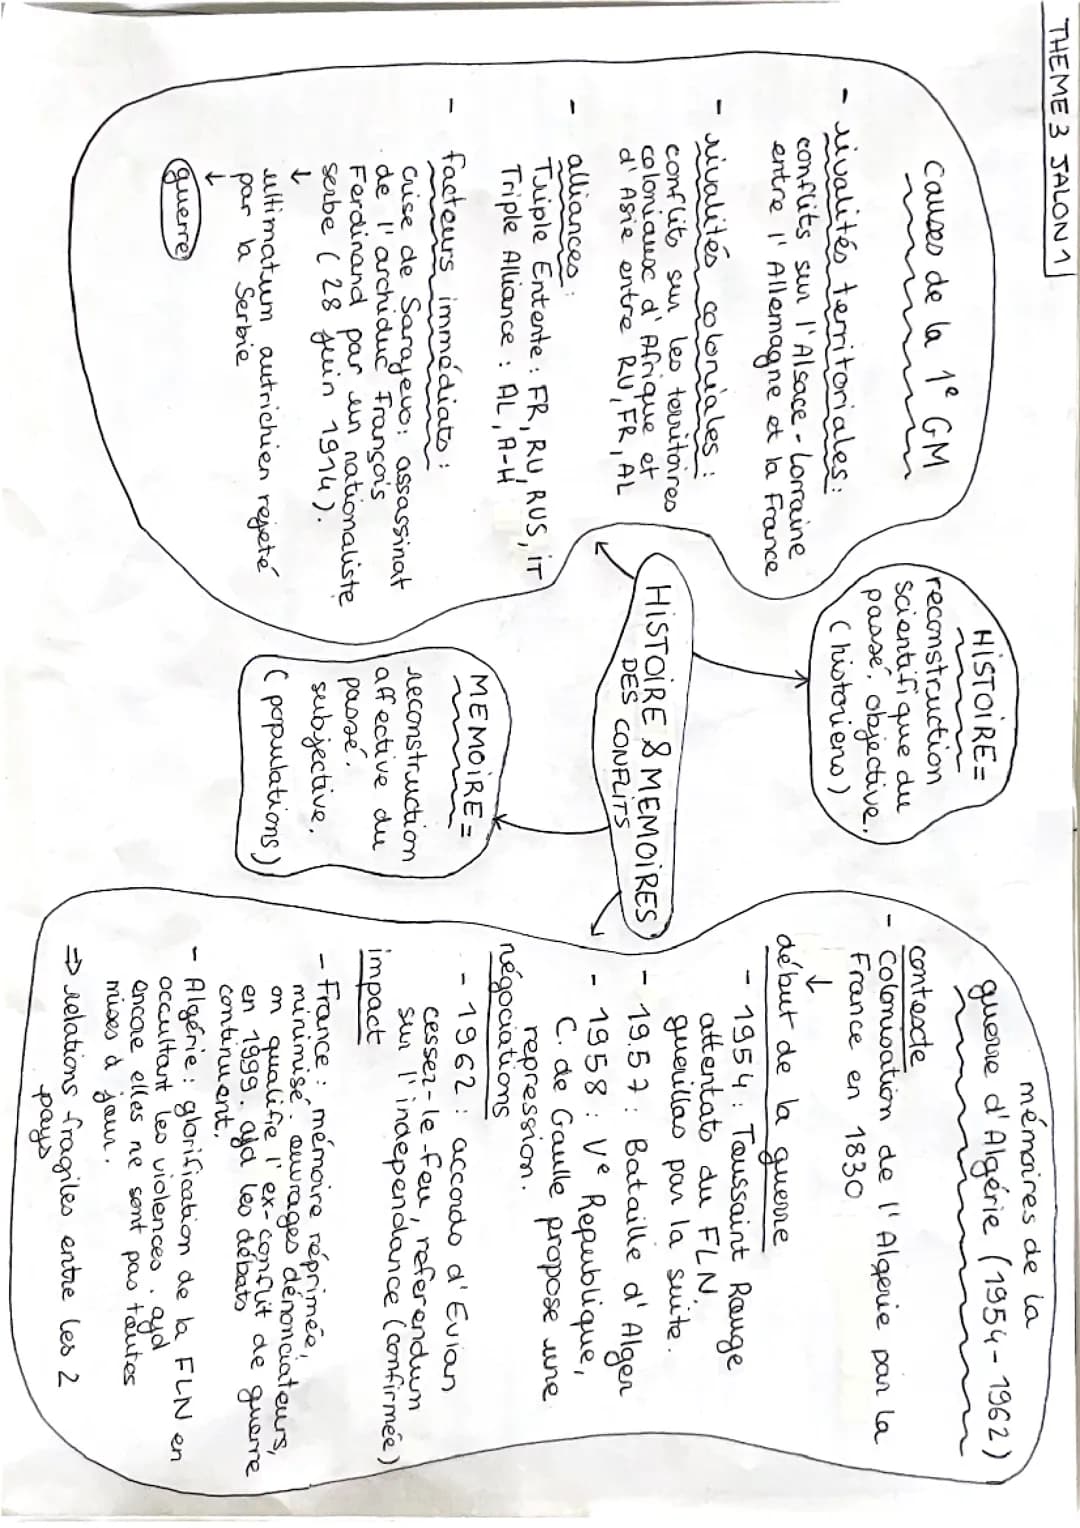 THEME 3 JALON 1
Causes de la 1e GM
- rivalités territoriales :
conflits sur l'Alsace-Lorraine
entre l'Allemagne et la France
- rivalités coloniales :
conflits sur les territoires
coloniaux d'Afrique et
d'Asie entre RU, FR, AL
- alliances :
Triple Entente : FR, RU, RUS, iT
Triple Alliance : AL, A-H
- facteurs immédiats :
crise de Sarajevo : assassinat
de l'archiduc François
Ferdinand par un nationaliste
serbe (28 juin 1914).
↓
ultimatum autrichien rejeté
par la Serbie
↓
guerre
HiSTOiRE =
reconstruction
scientifique du
passé, objective.
(historiens)
HiSTOiRE & MEMOiRES
DES CONFLiTS
MEMOiRE =
reconstruction
affective du
passé.
subjective.
(populations)
mémoires de la
guerre d'Algérie (1954-1962)
contexte
- Colonisation de l'Algerie par la
France en 1830
↓
début de la guerre
- 1954 : Toussaint Rouge
attentats du FLN,
guerillas par la suite.
- 1957 : Bataille d'Alger
- 1958 : Ve Republique,
C. de Gaulle propose une
repression.
négociations
- 1962 : accords d'Evian
cessez-le-feu, referendum
sur l'independance (confirmée)
impact
- France : mémoire réprimée,
minimisé. ouvrages dénonciateurs,
on qualifie l'ex-conflit de guerre
en 1999. ajd les débats
continuent.
- Algérie : glorification de la FLN en
occultant les violences. ajd
encore elles ne sont pas toutes
mises à jour.
⇒ relations fragiles entre les 2
pays